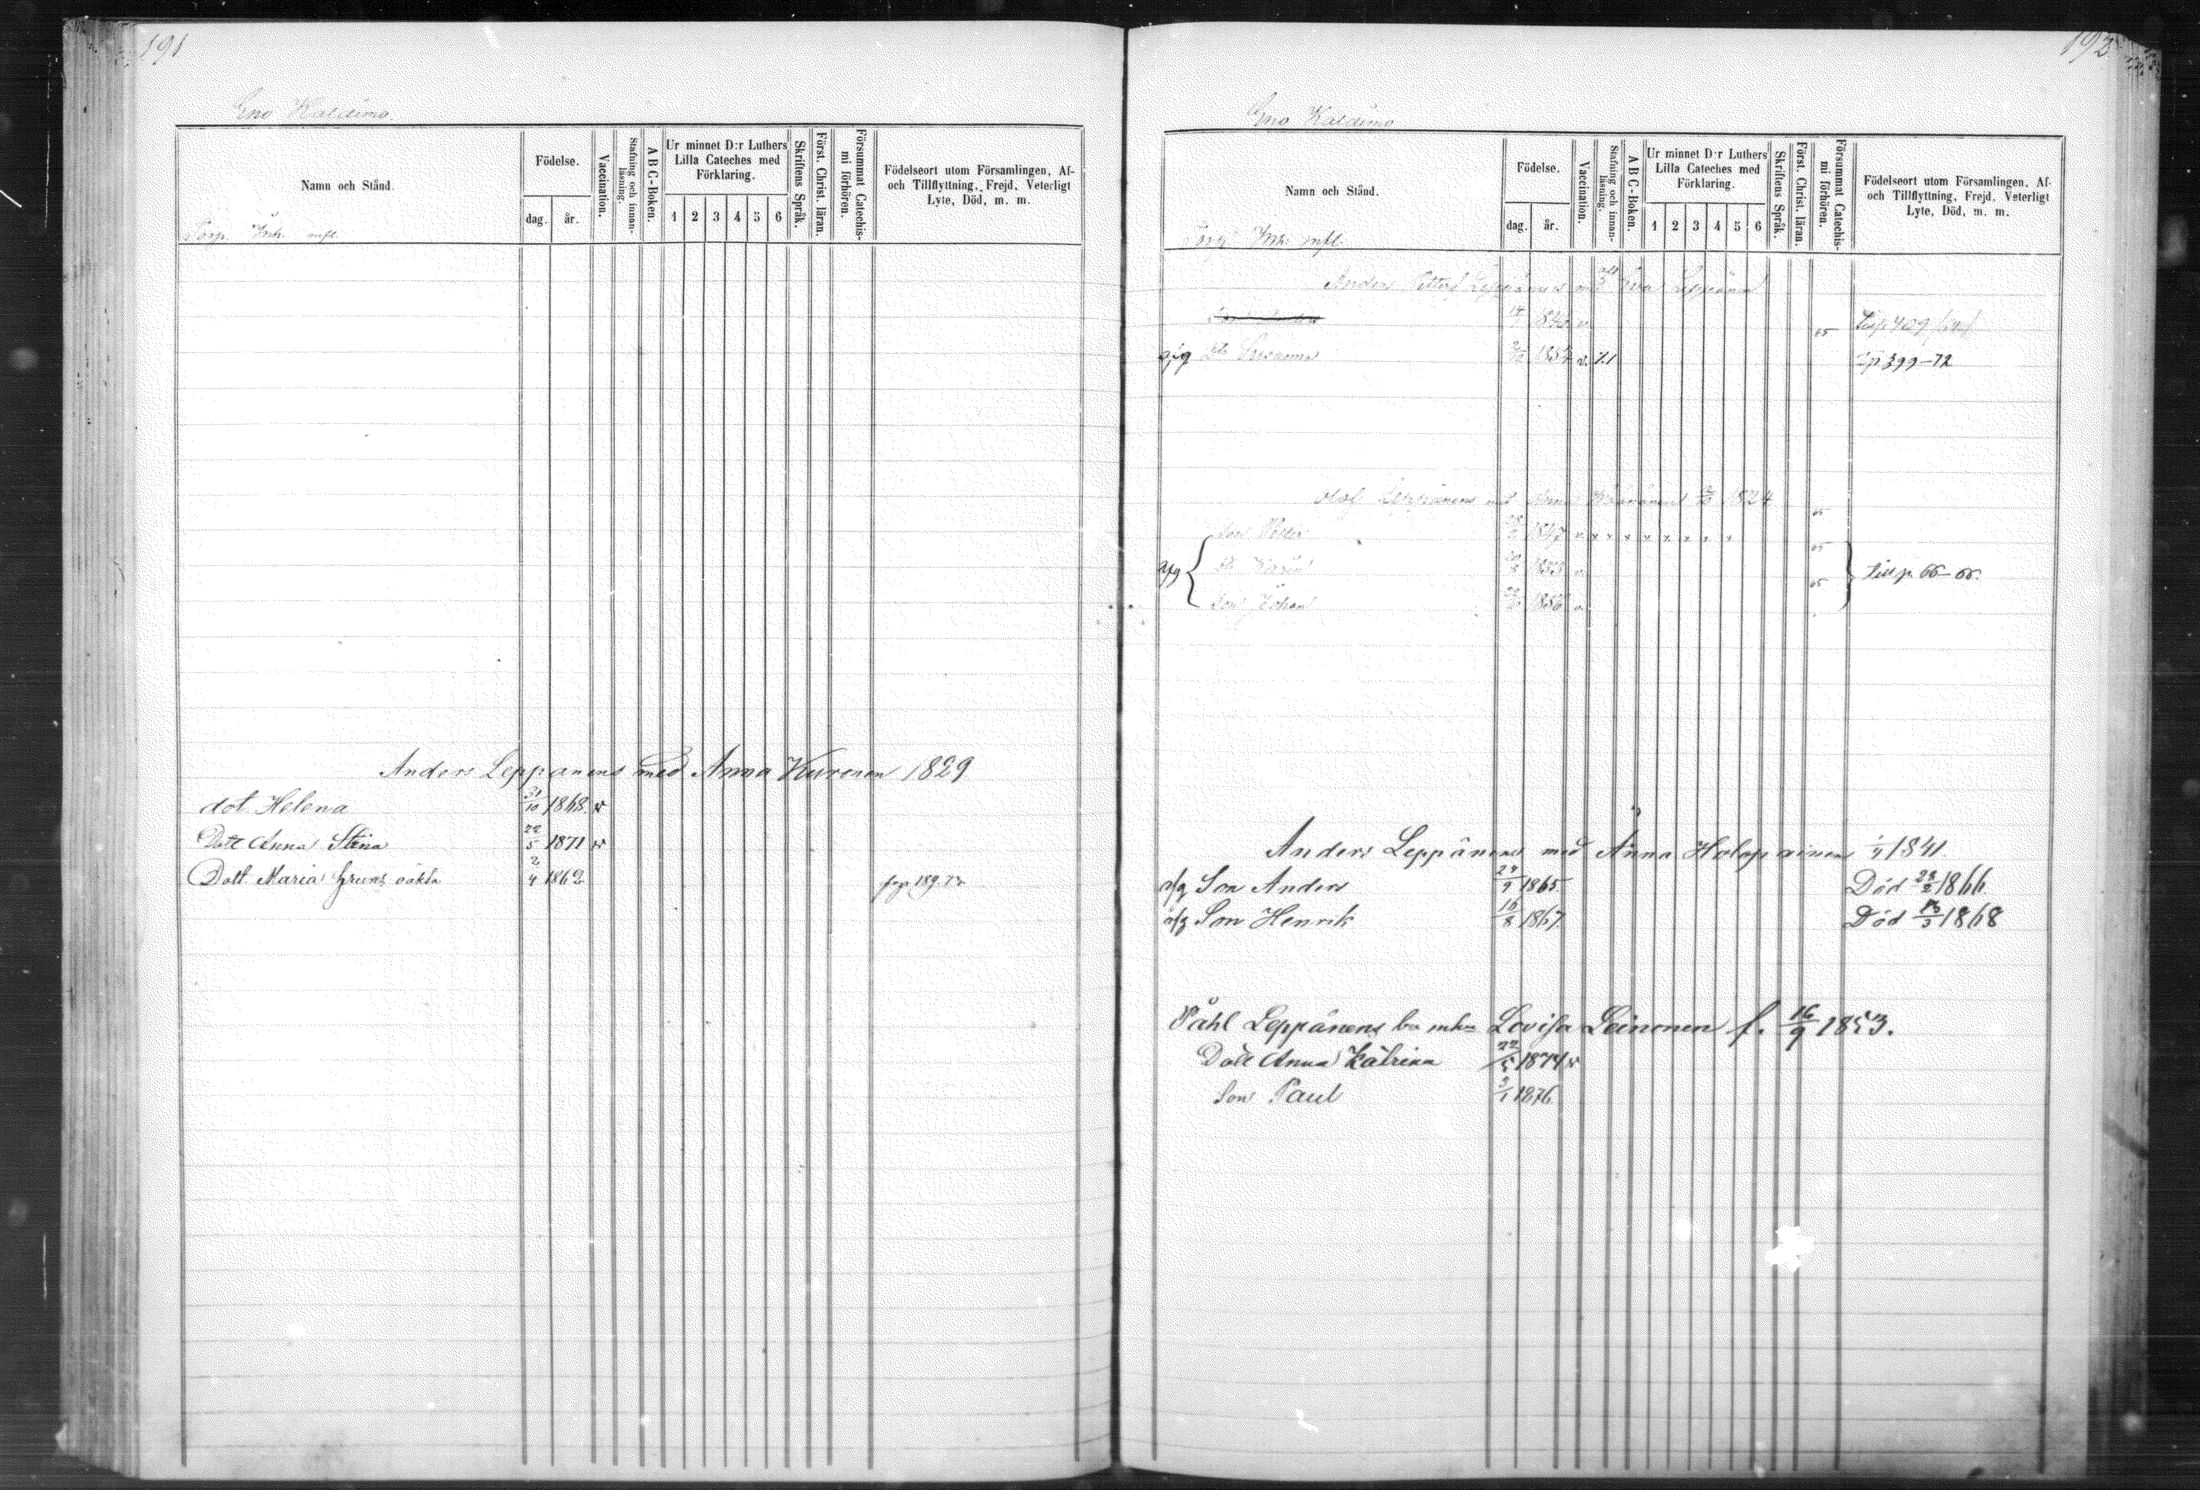 191
Eno Kaldimo.
Namn och Stånd.
Torp. Inh. mfl.
Födelse.
dag. år.
Vaccination.
Stafning och innanläsning.
A B C-Boken.
Ur minnet D:r Luthers
Lilla Cateches med
Förklaring.
1 2 3 4 5 6
Skriftens Språk.
Först. Christ. läran.
Försummat Catechismi förhören.
Födelseort utom Församlingen, Af-
och Tillflyttning, Frejd, Veterligt
Lyte, Död, m. m.
Anders Leppänens med Anna Kurenen 1829
dot. Helena 31/10 1868. v
Dott Anna Stina 22/5 1871 v
Dott. Maria 2/4 1862 189.
192
Eno Kaldimo
Namn och Stånd.
Torp Inh. mfl.
Födelse.
dag. år.
Vaccination.
Stafning och innanläsning.
A B C-Boken.
Ur minnet D:r Luthers
Lilla Cateches med
Förklaring.
1 2 3 4 5 6
Skriftens Språk.
Först. Christ. läran.
Försummat Catechismi förhören.
Födelseort utom Församlingen, Af-
och Tillflyttning, Frejd, Veterligt
Lyte, Död, m. m.
Anders Leppänens med Eva
65 409
Susanna v. 399-72
Olof Leppänens med Anna 1824
65
Son Petter 1847 v x x x x x x x
65
Karin 1853 v
65
Son Johan 1856 v
Till p. 66-66.
Anders Leppänens med Anna Holopainen 1/4 1841.
Son Anders 24/9 1865. Död 23/2 1866
Son Henrik 16/8 1867. Död 1868
Påhl Leppänens Lovisa Leinonen f. 16/9 1853.
Dott Anna Katrina 22/5 1874 v
Son Paul 3/1 1876